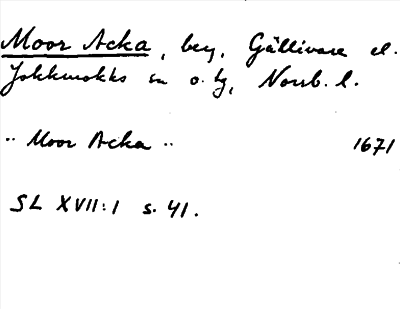 Moor Acka, berg, Gällivare el.
Jokkmokks sn o. tg, Norrb. l.
.. Moor Acka .. 1671
SL XVII:1 s. 41.